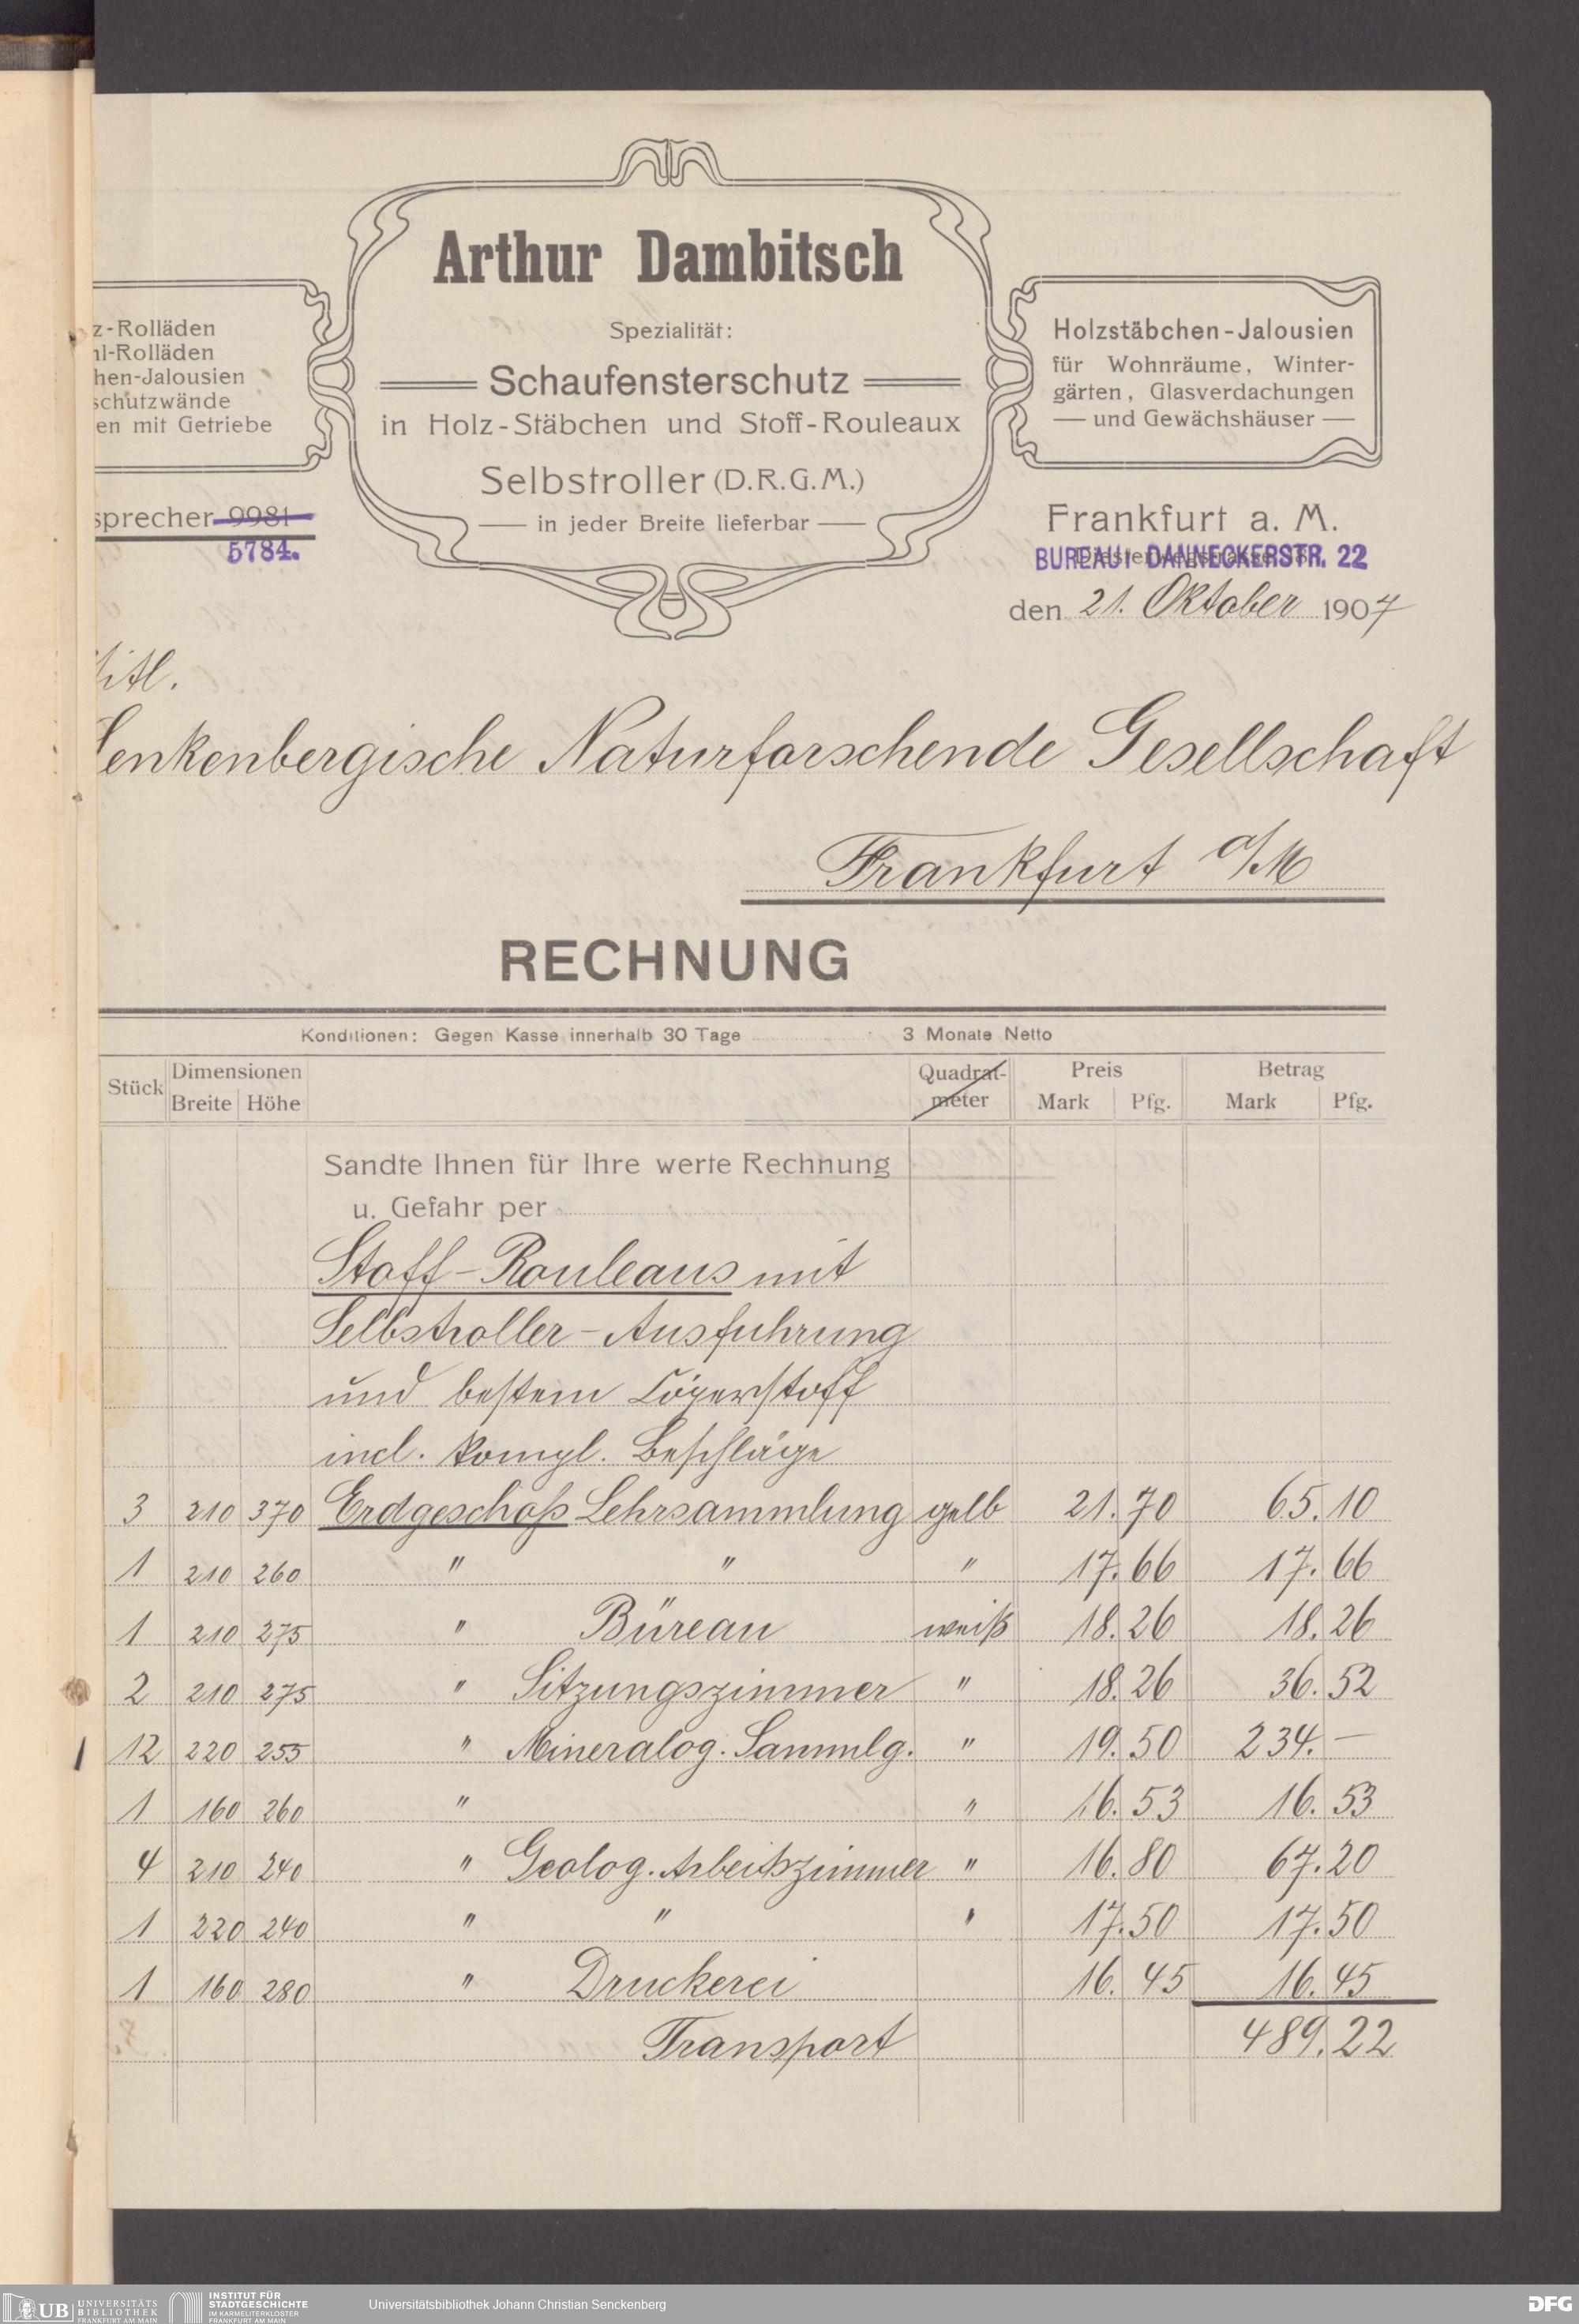 Arthur Dambitsch
Spezialität:
Schaufensterschutz
in Holz-Stäbchen und Stoff-Rouleaux
Selbstroller (D.R.G.M.)
— in jeder Breite lieferbar —
z-Rolläden
hl-Rolläden
hen-Jalousien
schutzwände
en mit Getriebe
Holzstäbchen-Jalousien
für Wohnräume, Winter-
gärten, Glasverdachungen
— und Gewächshäuser —
sprecher 9981
5784.
Frankfurt a. M.
BUREAU: DANNECKERSTR. 22
den 21. Oktober 1907
Titl.
Senkenbergische Naturforschende Gesellschaft
Frankfurt a/M
RECHNUNG
Konditionen: Gegen Kasse innerhalb 30 Tage 3 Monate Netto
Stück Dimensionen Breite Höhe Quadrat-meter Preis Mark Pfg. Betrag Mark Pfg.
Sandte Ihnen für Ihre werte Rechnung
u. Gefahr per
Stoff-Rouleaus mit
Selbstroller-Ausfuhrung
und bestem Cöperstoff
incl. kompl. Beschläge
3 210 370 Erdgeschoß Lehrsammlung gelb 21.70 65.10
1 210 260 " " " 17.66 17.66
1 210 275 " Büreau weiß 18.26 18.26
2 210 275 " Sitzungszimmer " 18.26 36.52
12 220 255 " Mineralog. Sammlg. " 19.50 234.—
1 160 260 " " 16.53 16.53
4 210 240 " Geolog. Arbeitszimmer " 16.80 67.20
1 220 240 " " " 17.50 17.50
1 160 280 " Druckerei 16.45 16.45
Transport 489.22
UB UNIVERSITÄTS
BIBLIOTHEK
FRANKFURT AM MAIN
INSTITUT FÜR
STADTGESCHICHTE
IM KARMELITERKLOSTER
FRANKFURT AM MAIN
Universitätsbibliothek Johann Christian Senckenberg
DFG